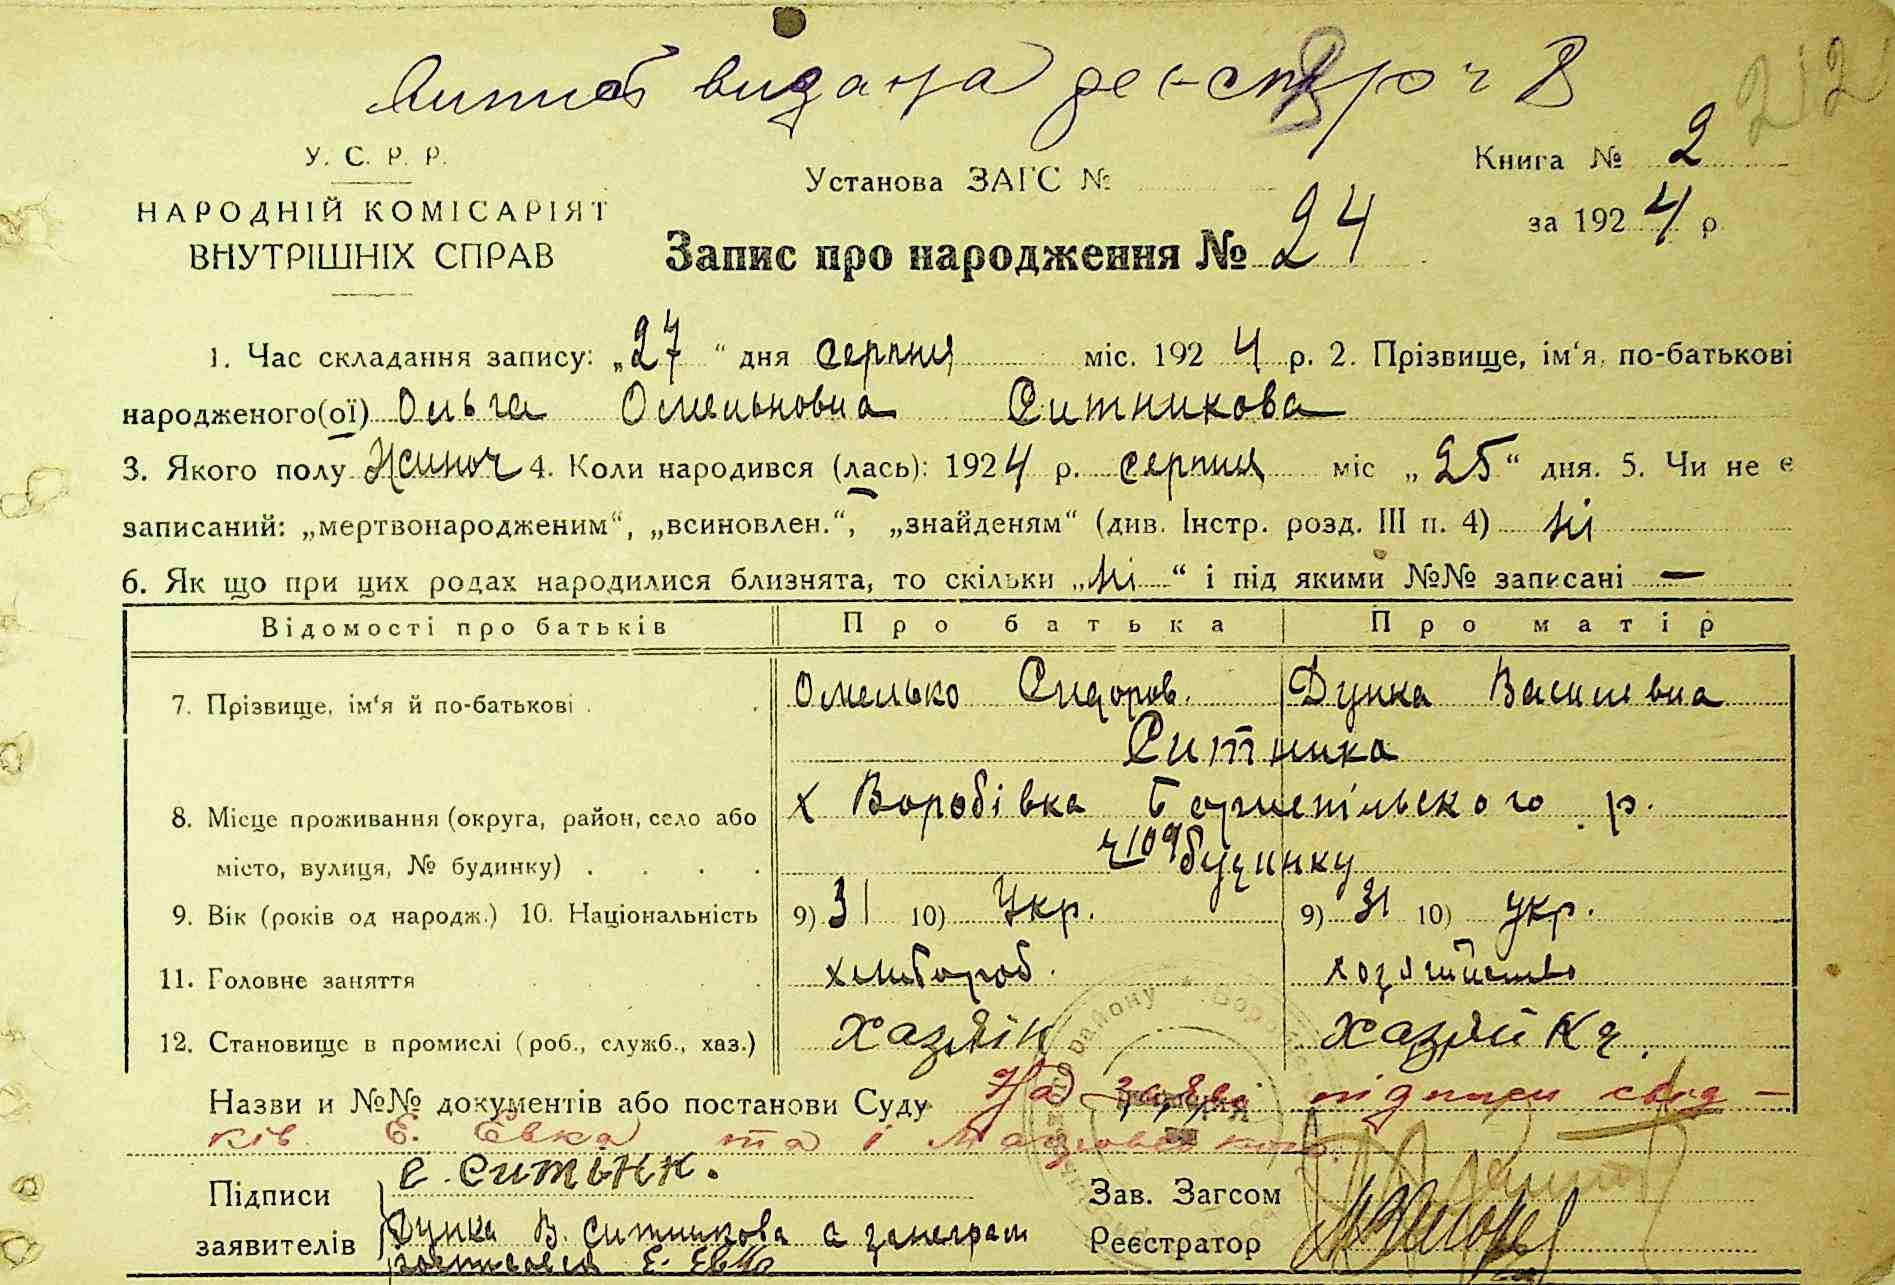 видана
212
У. С. Р. Р.
НАРОДНІЙ КОМІСАРІЯТ
ВНУТРІШНІХ СПРАВ
Установа ЗАГС №
Книга № 2
за 1924 р.
Запис про народження № 24
1. Час складання запису: „27“ дня серпня міс. 1924 р. 2. Прізвище, ім'я, по-батькові
народженого(ої) Ольга Омельновна Ситникова
3. Якого полу Жиноч 4. Коли народився (лась): 1924 р. серпня міс „25“ дня. 5. Чи не є
записаний: „мертвонародженим“, „всиновлен.“, „знайденям“ (див. Інстр. розд. III п. 4) ні
6. Як що при цих родах народилися близнята, то скільки „ні“ і під якими №№ записані —
Відомості про батьків Про батька Про матір
7. Прізвище, ім'я й по-батькові . . Омелько Сидоров. Дунка Василевна
Ситника
8. Місце проживання (округа, район, село або х Воробівка Бориспільського р.
місто, вулиця, № будинку) . . . . ч 109 будинку
9. Вік (років од народж.) 10. Національність 9) 31 10) Укр. 9) 31 10) укр.
11. Головне заняття хлибороб. хозяйство
12. Становище в промислі (роб., служб., хаз.) Хазяїн Хазяйка.
Назви и №№ документів або постанови Суду На заяві підписи свід-
ків Е. Евка та і
Підписи Е. Ситнік. Зав. Загсом
заявителів Дунка В. Ситникова а Реєстратор
Е. Евко